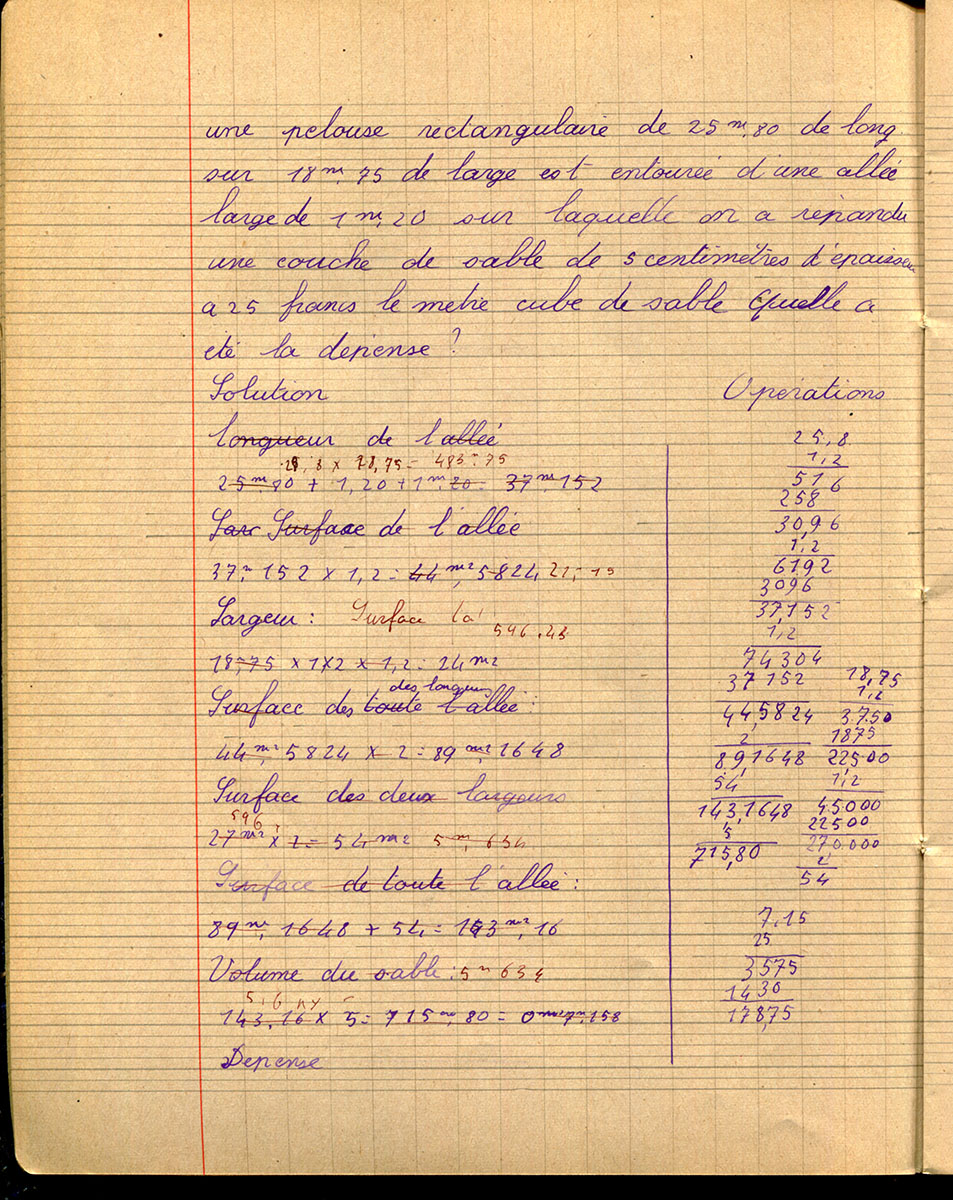 une pelouse rectangulaire de 25 m, 80 de long
sur 18 m, 75 de large est entourée d'une allée
large de 1 m, 20 sur laquelle on a répandu
une couche de sable de 5 centimètres d'épaisseur
a 25 francs le metre cube de sable Quelle a
été la dépense ?
Solution
Opérations
longueur de l'allée
28, 8 x 18,75 = 483 75
25 m, 80 + 1,20 + 1 m, 20 = 37 m, 152
Sar Surface de l'allée
37, 152 x 1,2 = 44 m2, 5824
Largeur : Surface
596.43
18,75 x 1x2 x 1,2 = 24 m2
des longueurs
Surface des toute l'allée :
44 m2, 5824 x 2 = 89 m2, 1648
Surface des deux largeurs
596
27 m2 x 2 = 54 m2 5 m, 634
Surface de toute l'allée :
89 m2, 1648 + 54, = 143 m2, 16
Volume du sable : 5 m 634
143,16 x 5 = 715 m, 80 = 0 7, 158
Depense
25,8
1,2
516
258
30,96
1,2
6192
3096
37,152
1,2
74304
37152
44,5824
2
89,1648
54
143,1648
5
715,80
18,75
1,2
3750
1875
22500
1,2
45000
22500
270000
2
54
7,15
25
3575
1430
178,75